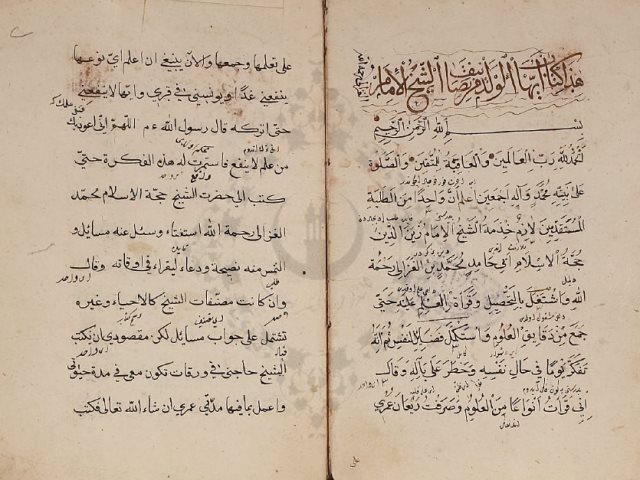 هذا كتاب ايها الولد من تصانيف الشيخ الامام
بسم الله الرحمن الرحيم
الحمد لله رب العالمين والعاقبة للمتقين والصلوة
على نبيه محمد وآله اجمعين اعلم ان واحدا من الطلبة
المتقدمين لازم خدمة الشيخ الامام زين الدين
حجة الاسلام ابي حامد محمد بن الغزالي رحمة
الله واشتغل بالتحصيل وقراءة العلم عليه حتى
جمع من دقايق العلوم واستكمل فضايل النفس ثم انه
تفكر يوما في حال نفسه وخطر على باله وقال
اني قرأت انواعا من العلوم وصرفت ريعان عمري
على تعلمها وجمعها والآن ينبغي ان اعلم اي نوعها
ينفعني غدا ويونسني في قبري وايها لا ينفعني
حتى اتركه قال رسول الله ءم اللهم اني اعوذ بك
من علم لا ينفع فاستمرت له هذه الفكرة حتى
كتب الى حضرت الشيخ حجة الاسلام محمد
الغزالى رحمة الله استفتاء وسئل عنه مسائل و
التمس منه نصيحة ودعاء ليقراء في اوقاته وقال
وان كانت مصنفات الشيخ كالاحياء وغيره
تشتمل على جواب مسائل لكن مقصودي ان يكتب
الشيخ حاجتي في ورقات تكون معي في مدة حيوتي
واعمل بما فيها مدة عمري ان شاء الله تعالى فكتب